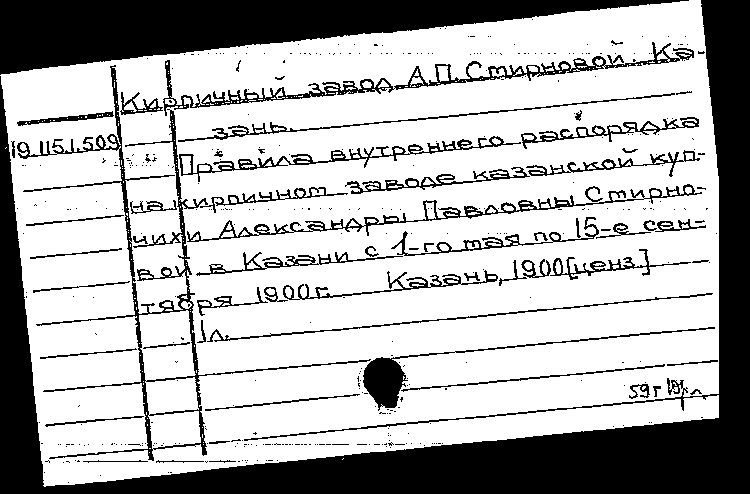 Кирпичный завод А.П.Смирновой. Ка-
зань.
19.115.1.509
Правила внутреннего распорядка
на кирпичном заводе казанской куп-
чихи Александры Павловны Смирно-
вой в Казани с 1-го мая по 15-е сен-
тября 1900г. Казань, 1900[ценз.]
1л.
59г